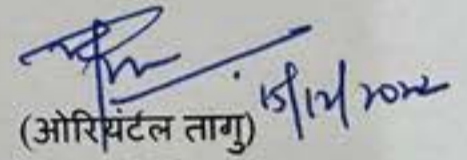 15/12/2022
(ओरियंटल तागु)